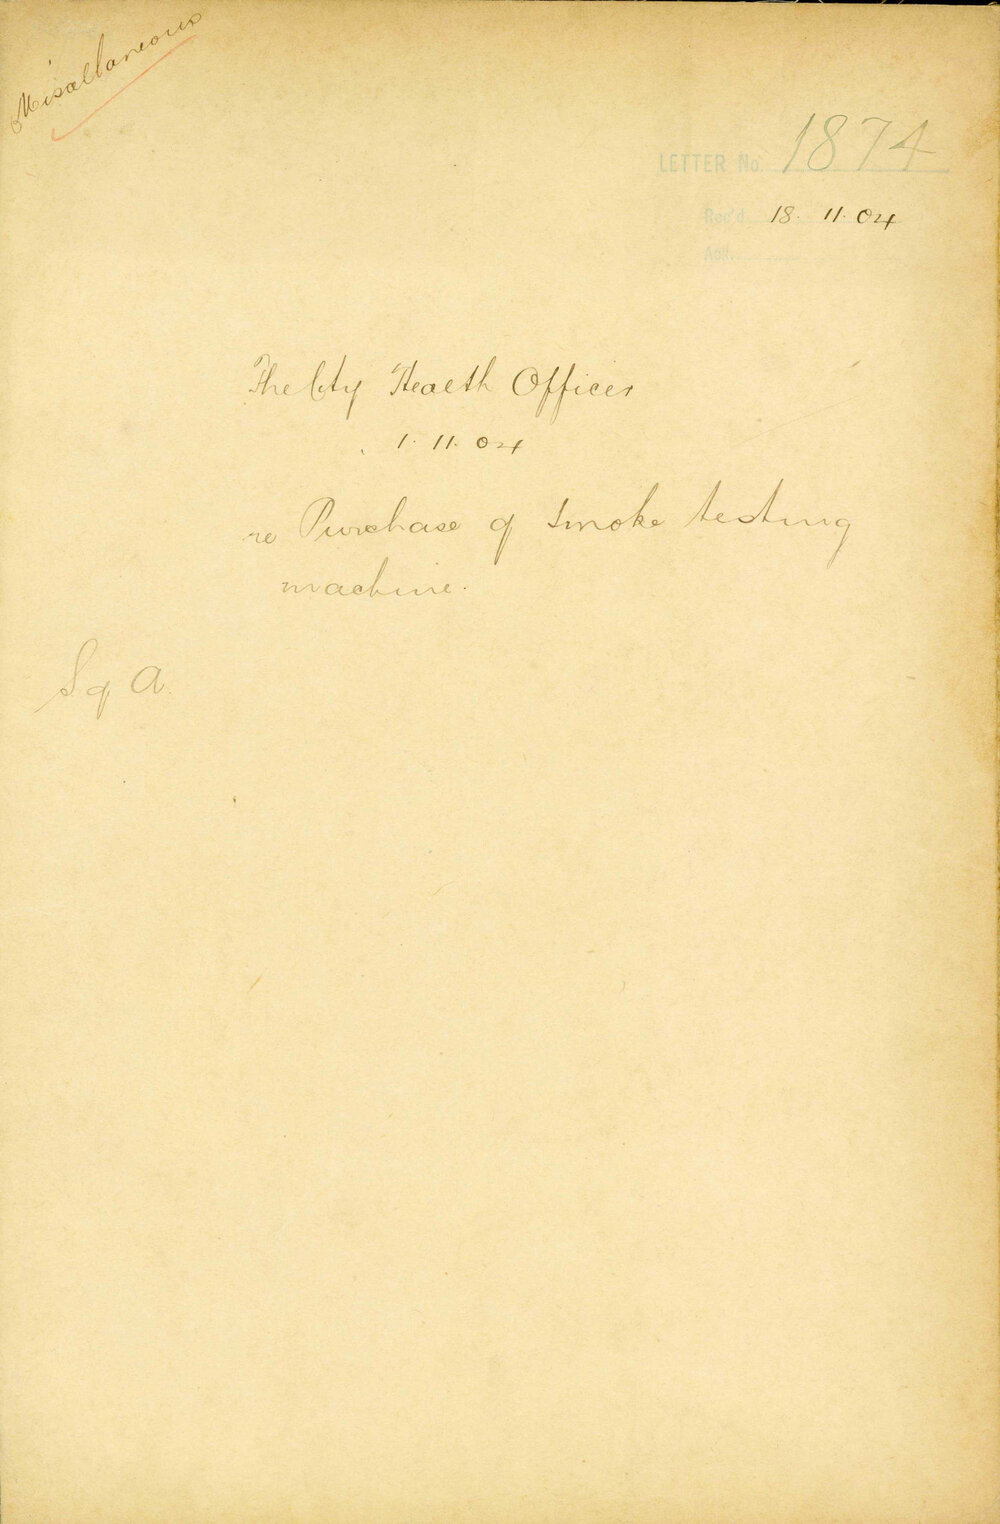 Miscellaneous
LETTER No. 1874
Rec'd 18. 11. 04
Ack.
The City Health Officer
1. 11. 04
re Purchase of smoke testing
machine.
S of A.